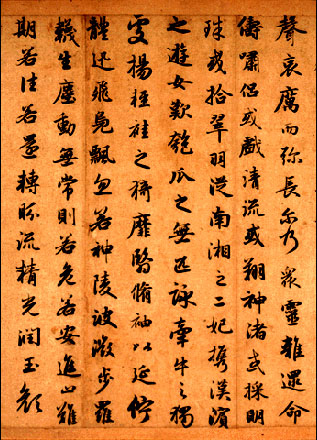 聲哀厲而弥長尔乃衆靈雜遝命
儔嘯侶或戲清流或翔神渚或採明
珠或拾翠羽從南湘之二妃攜漢濱
之遊女歎匏瓜之無匹詠牽牛之獨
處揚輕袿之猗靡翳脩袖以延佇
體迅飛鳧飄忽若神陵波微步羅
襪生塵動無常則若危若安進止難
期若往若還轉眄流精光潤玉顏